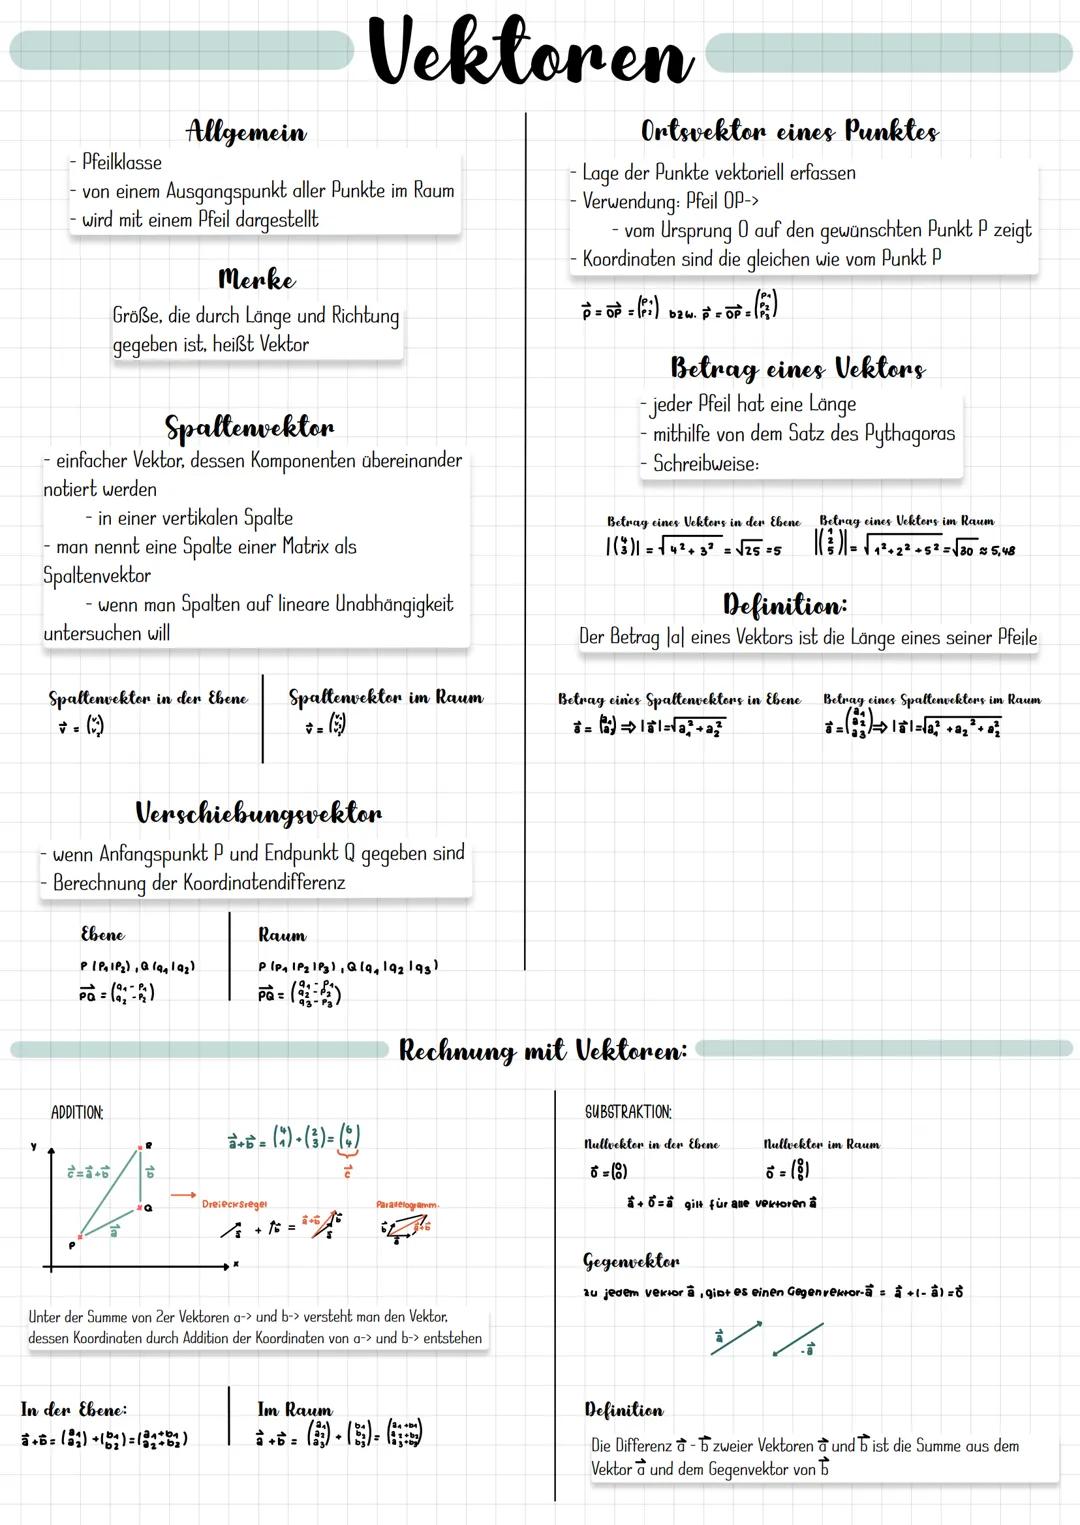 Vektoren
Allgemein
- Pfeilklasse
- von einem Ausgangspunkt aller Punkte im Raum
- wird mit einem Pfeil dargestellt
Merke
Größe, die durch Länge und Richtung
gegeben ist, heißt Vektor
Spaltenvektor
- einfacher Vektor, dessen Komponenten übereinander
notiert werden
- in einer vertikalen Spalte
- man nennt eine Spalte einer Matrix als
Spaltenvektor
- wenn man Spalten auf lineare Unabhängigkeit
untersuchen will
Spaltenvektor in der Ebene
v⃗ = (v₁ v₂)
Spaltenvektor im Raum
v⃗ = (v₁ v₂ v₃)
Verschiebungsvektor
- wenn Anfangspunkt P und Endpunkt Q gegeben sind
- Berechnung der Koordinatendifferenz
Ebene
P (P₁|P₂), Q (q₁|q₂)
PQ⃗ = (q₁-P₁ q₂-P₂)
Raum
P (P₁|P₂|P₃), Q (q₁|q₂|q₃)
PQ⃗ = (q₁-P₁ q₂-P₂ q₃-P₃)
Ortsvektor eines Punktes
- Lage der Punkte vektoriell erfassen
- Verwendung: Pfeil OP->
- vom Ursprung O auf den gewünschten Punkt P zeigt
- Koordinaten sind die gleichen wie vom Punkt P
p⃗ = OP⃗ = (P₁ P₂) bzw. p⃗ = OP⃗ = (P₁ P₂ P₃)
Betrag eines Vektors
- jeder Pfeil hat eine Länge
- mithilfe von dem Satz des Pythagoras
- Schreibweise:
Betrag eines Vektors in der Ebene
|(4 3)| = √4² + 3² = √25 = 5
Betrag eines Vektors im Raum
|(1 2 5)| = √1² + 2² + 5² = √30 ≈ 5,48
Definition:
Der Betrag |a| eines Vektors ist die Länge eines seiner Pfeile
Betrag eines Spaltenvektors in Ebene
a⃗ = (a₁ a₂) ⇒ |a⃗| = √a₁² + a₂²
Betrag eines Spaltenvektors im Raum
a⃗ = (a₁ a₂ a₃) ⇒ |a⃗| = √a₁² + a₂² + a₃²
Rechnung mit Vektoren:
ADDITION:
y
R
c⃗ = a⃗ + b⃗
b⃗
Q
a⃗
P
x
a⃗ + b⃗ = (4 1) + (2 3) = (6 4)
c⃗
Dreiecksregel
a⃗ + b⃗ = a⃗+b⃗ b⃗ a⃗
Parallelogramm.
b⃗ a⃗ a⃗+b⃗
Unter der Summe von 2er Vektoren a-> und b-> versteht man den Vektor,
dessen Koordinaten durch Addition der Koordinaten von a-> und b-> entstehen
In der Ebene:
a⃗ + b⃗ = (a₁ a₂) + (b₁ b₂) = (a₁+b₁ a₂+b₂)
Im Raum
a⃗ + b⃗ = (a₁ a₂ a₃) + (b₁ b₂ b₃) = (a₁+b₁ a₂+b₂ a₃+b₃)
SUBSTRAKTION:
Nullvektor in der Ebene
o⃗ = (0 0)
Nullvektor im Raum
o⃗ = (0 0 0)
a⃗ + o⃗ = a⃗ gilt für alle vektoren a⃗
Gegenvektor
zu jedem vektor a⃗, gibt es einen Gegenvektor -a⃗ = a⃗ + (-a⃗) = o⃗
a⃗
-a⃗
Definition
Die Differenz a⃗ - b⃗ zweier Vektoren a⃗ und b⃗ ist die Summe aus dem
Vektor a⃗ und dem Gegenvektor von b⃗